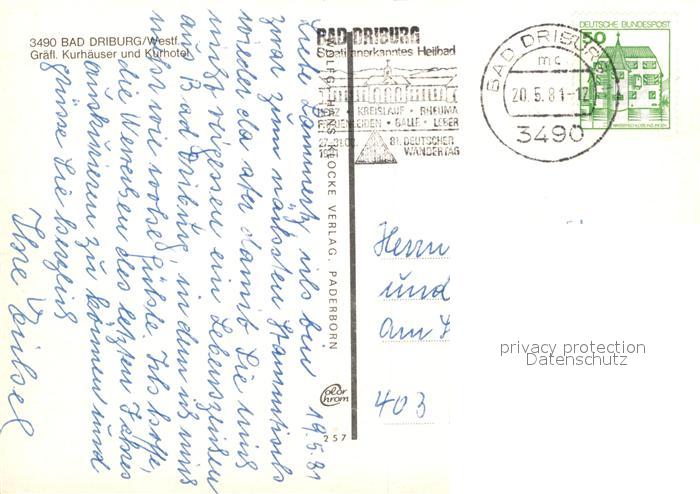 3490 BAD DRIBURG/Westf.
Gräfl. Kurhäuser und Kurhotel
BAD DRIBURG
Staatl. anerkanntes Heilbad
HERZ • KREISLAUF • RHEUMA
FRAUENLEIDEN • GALLE • LEBER
81. DEUTSCHER
WANDERTAG
BAD DRIBURG
mc
20.5.81-12
3490
DEUTSCHE BUNDESPOST
50
WOLFGANG HANS KLOCKE VERLAG, PADERBORN
Color
Chrom
257
19.5.81
Liebe Lammertz, ich bin
zwar zum nächsten Stammtisch
wieder da aber damit Sie mich
nicht vergessen ein Lebenszeichen
aus Bad Driburg, in dem ich mich
sehr wohl fühle. Ich hoffe,
die des letzten Jahres
auskurieren zu können und
grüsse Sie herzlich
Ihre
Herrn
und
Am
403
privacy protection
Datenschutz